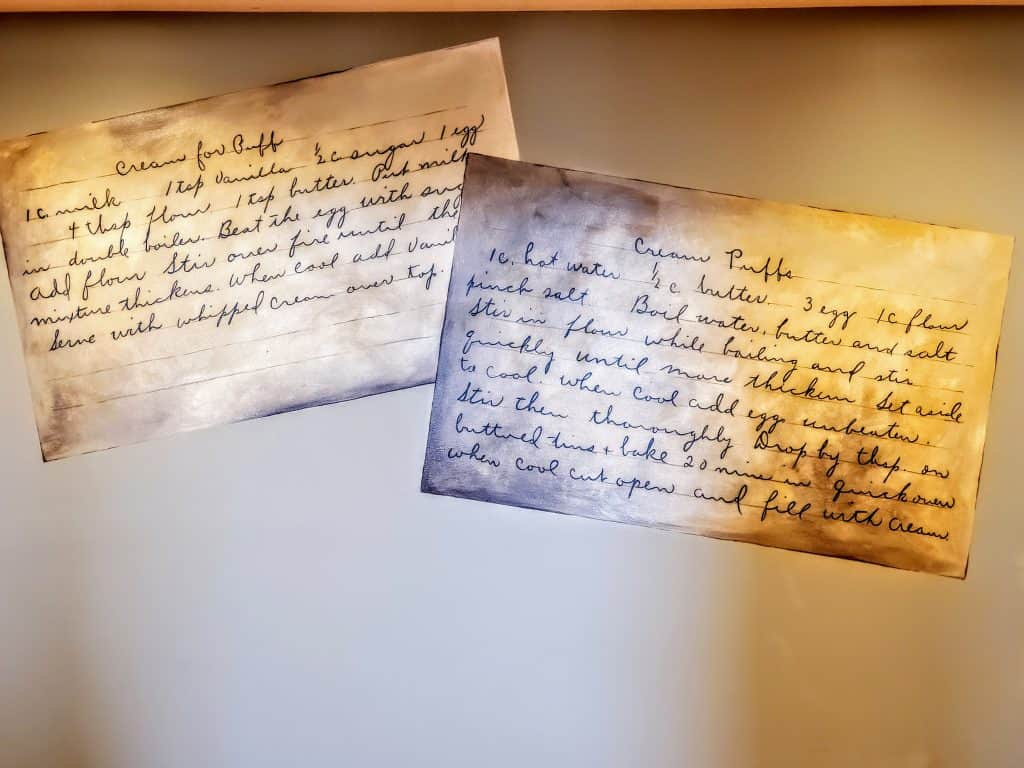 Cream for Puff
1 c. milk 1 tsp Vanilla ½ c sugar 1 egg
4 tbsp flour 1 tsp butter. Put milk
in double boiler. Beat the egg with sug
add flour Stir over fire until the
mixture thickens. When cool add Vanil
Serve with whipped cream over top.
Cream Puffs
1 c. hot water ½ c butter 3 egg 1 c flour
pinch salt Boil water, butter and salt
Stir in flour while boiling and stir
quickly until more thicken Set aside
to cool. When cool add eggs unbeaten.
Stir then thoroughly Drop by tbsp. on
buttred tins + bake 20 min in quick oven
when cool cut open and fill with cream